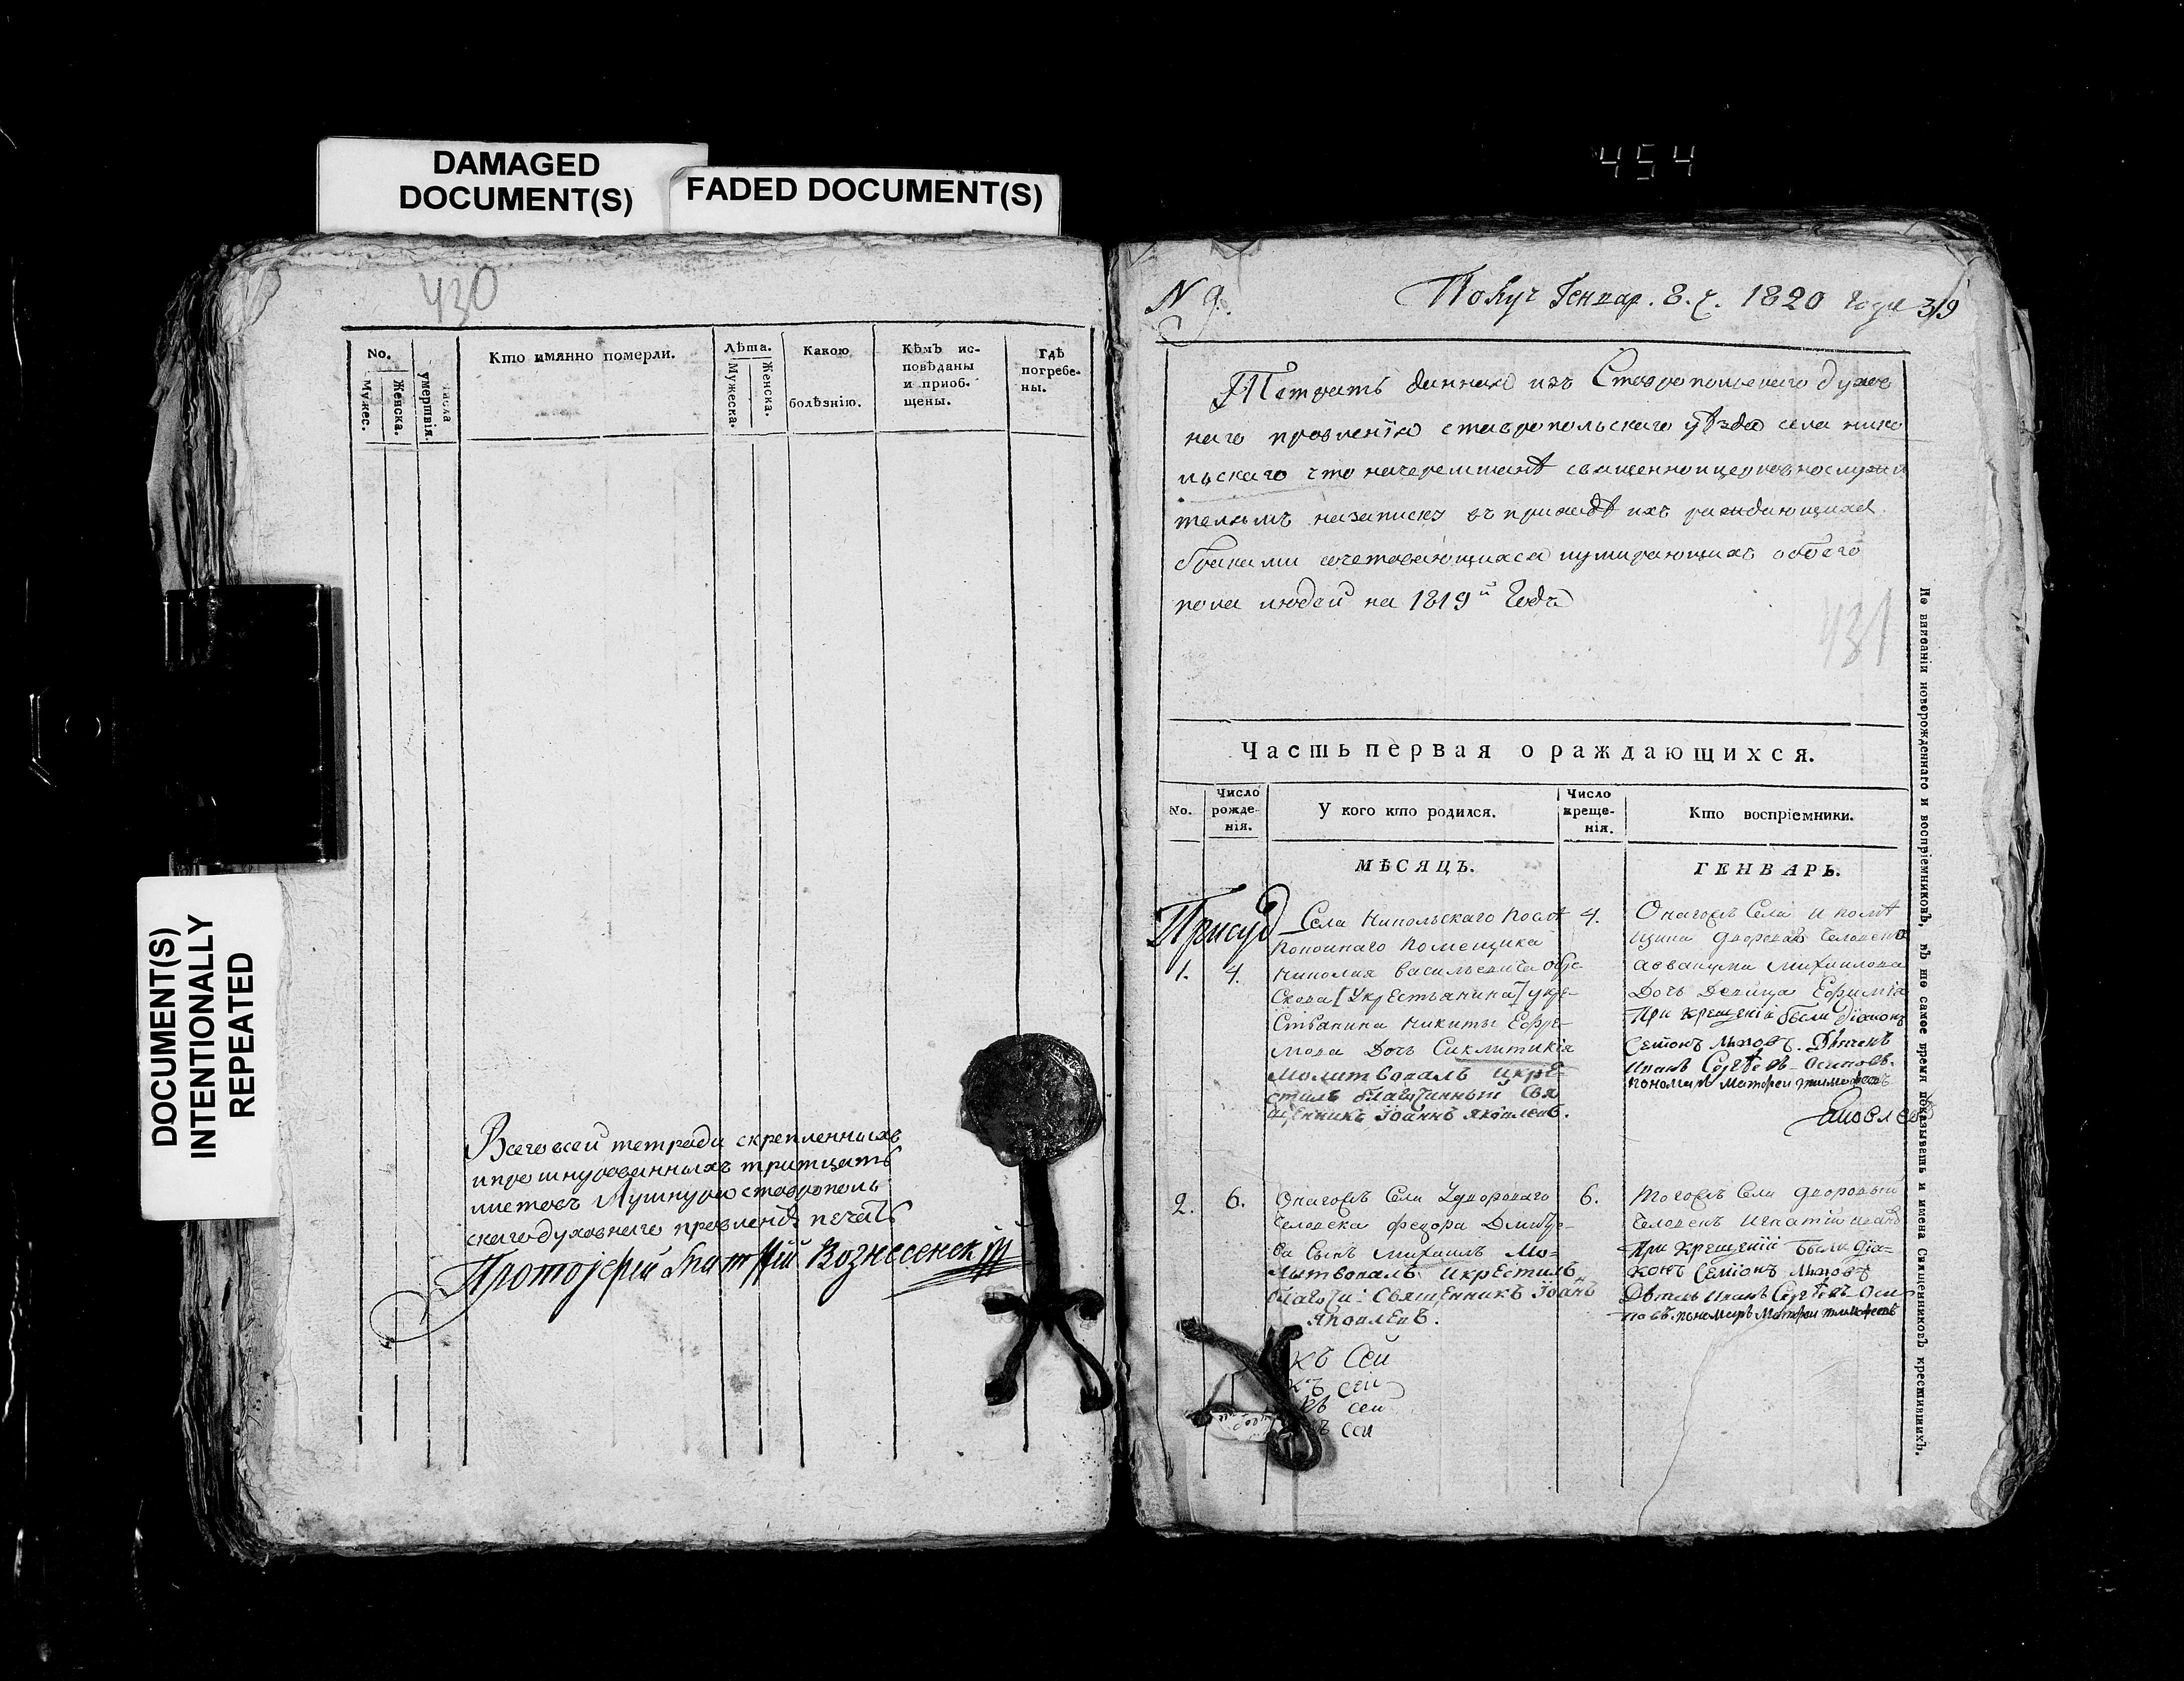 454
DAMAGED
DOCUMENT(S)
FADED DOCUMENT(S)
DOCUMENT(S)
INTENTIONALLY
REPEATED
430
No.
Мужес.
Женска.
Числа
умертвія.
Кто имянно померли.
Лѣта.
Мужеска.
Женска.
Какою
болѣзнію.
Кѣмъ ис-
повѣданы
и приоб-
щены.
Гдѣ
погребе-
ны.
Всего всей тетради скрепленныхъ
и прошнурованныхъ тритцать
листовъ Ушнура ставрополь
скаго духовнаго правленія печать
Протоіерей Вознесенскій
N 9.
Генвар. 8. ч. 1820 года 319
Тетрать данная изъ Ставропольскаго духов
наго правленія ставропольскаго уѣзда села нико
льскаго что на черемшанѣ священноицерковнослужи
телямъ на записку въ приходѣ ихъ раждающихся
браками сочетавающихся иумирающихъ обоего
пола людей на 1819й Годъ
431
Часть первая о раждающихся.
No.
Число
рожде-
нія.
У кого кто родился.
Число
креще-
нія.
Кто воспріемники.
МѢСЯЦЪ.
ГЕНВАРЬ.
Села Никольскаго
покойнаго помещика
1. 4.
Николая Васильевича
[Укрестьянина] укре-
стьянина Никиты Ефре-
мова Дочь Сиклитикія
Молитвовалъ икре-
стилъ благочинный Свя
щенникъ Іоаннъ Яковлевъ.
4.
Онагожъ Села
Человека
Михайлова
Дочь Девица Ефимія
При крещеніи были діаконъ
Семіонъ Дьячекъ
Иванъ Сергѣевъ Осиповъ.
пономарь Матфей тимофеевъ
2. 6.
Онагожъ Села Удвороваго
Человека федора Дмитре-
ва Сынъ Михаилъ Мо-
литвовалъ икрестилъ
благочи: Священникъ Іоанъ
Яковлевъ.
6.
Тогожъ Села дворовый
Человекъ Игнатій
При Крещеніи были діа-
конъ Семіонъ
Иванъ Сергѣевъ Оси
повъ. пономарь Матфей тимофеевъ
къ Сей
къ сей
къ сей
къ сей
По вписаніи новорожденнаго и воспріемниковъ, въ то самое время показывать и имена Священниковъ крестившихъ.